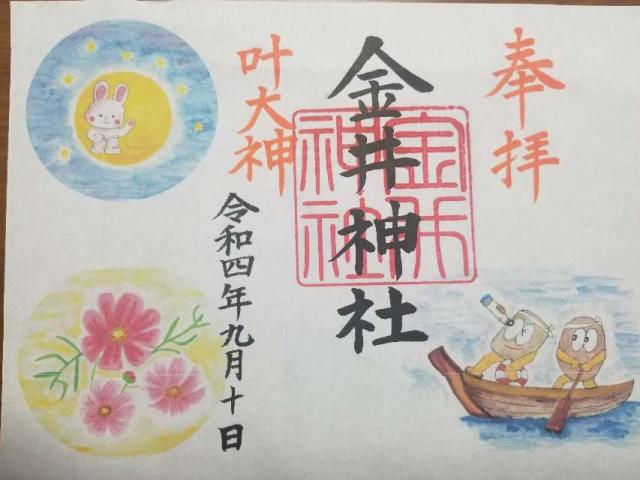 奉拝
金井神社
金井
神社
叶大神
令和四年九月十日